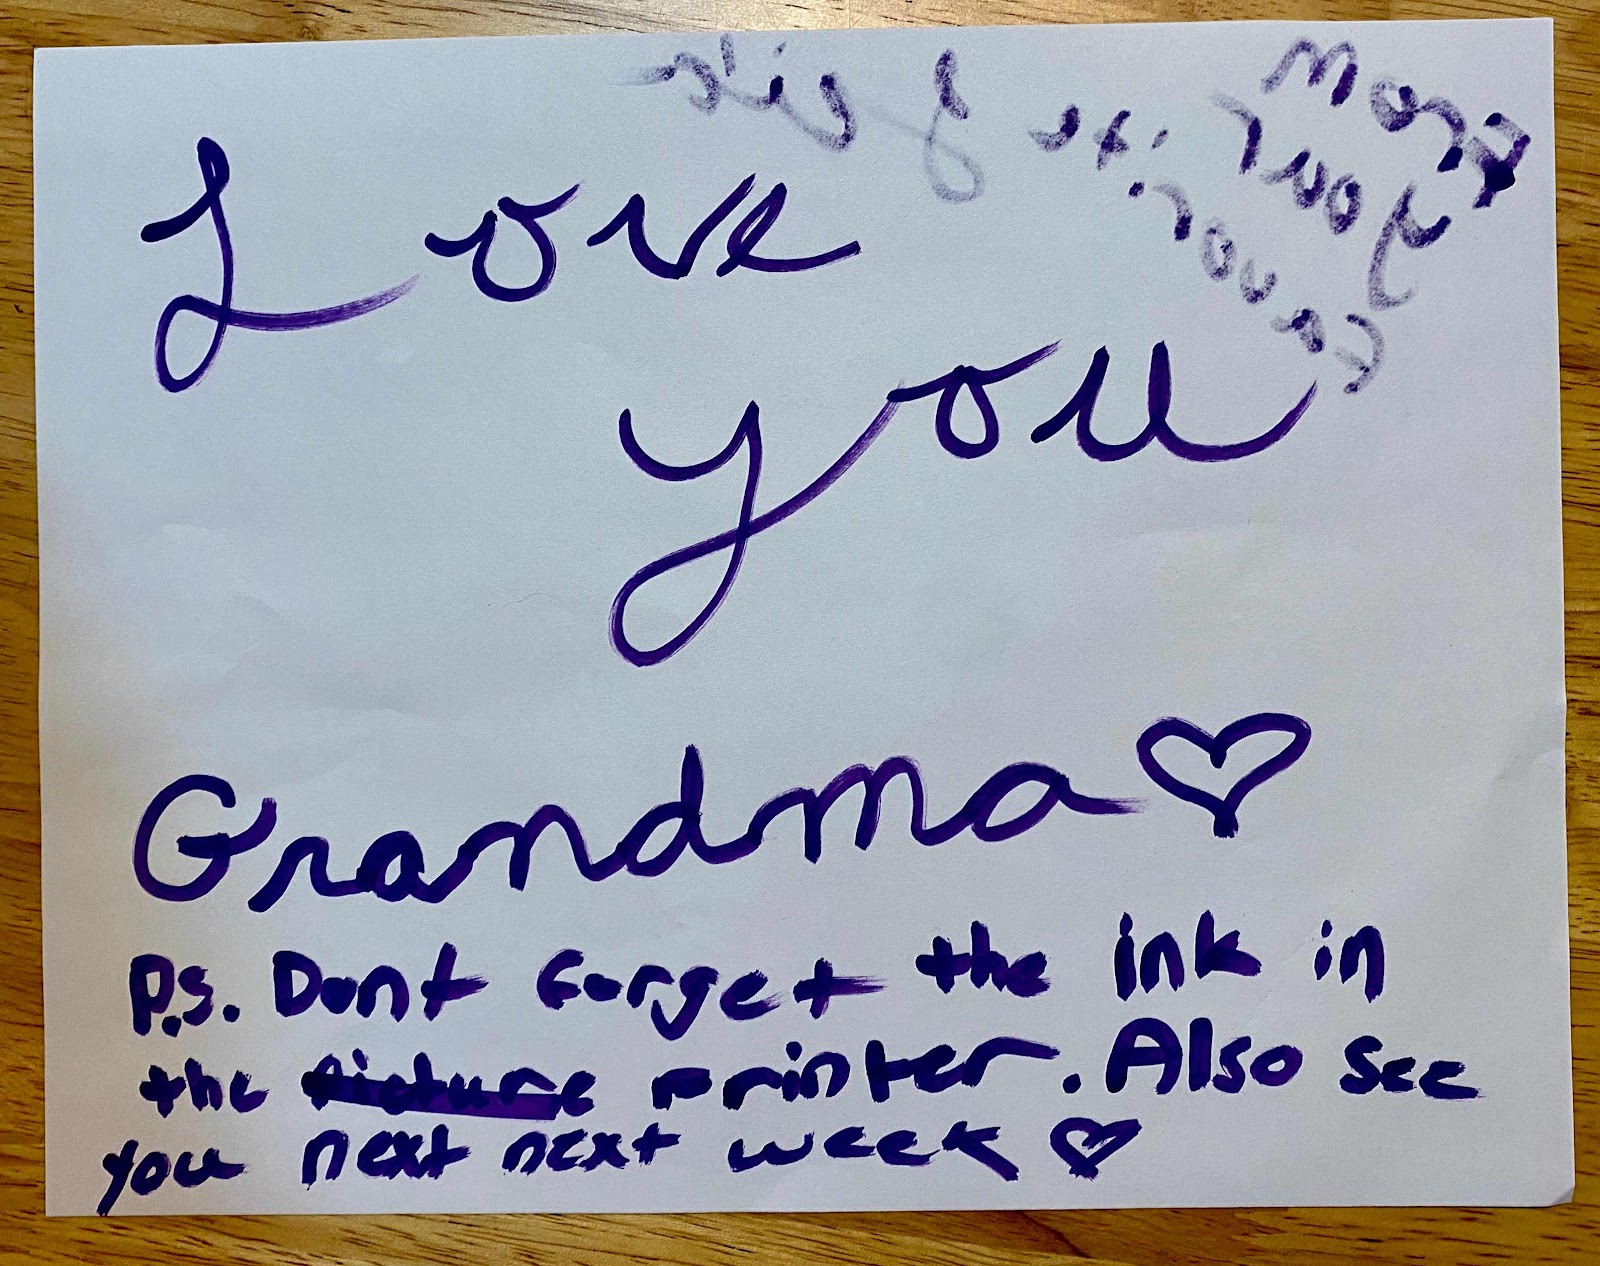 Love
you
Grandma♡
P.S. Dont forget the ink in
the picture printer. Also see
you next next week ♡